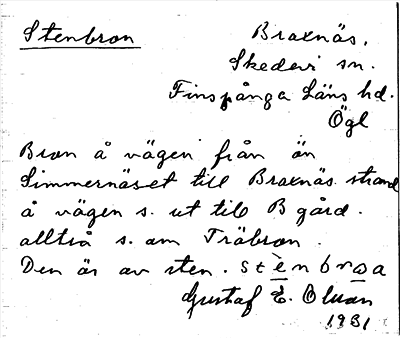 Stenbron
Braxnäs,
Skedevi sn.
Finspånga Läns hd.
Ögl
Bron å vägen från ön
Simmernäset till Braxnäs strand
å vägen s. ut till B gård.
alltså s. om Träbron.
Den är av sten. stènbroa
Gustaf E. Olson
1931